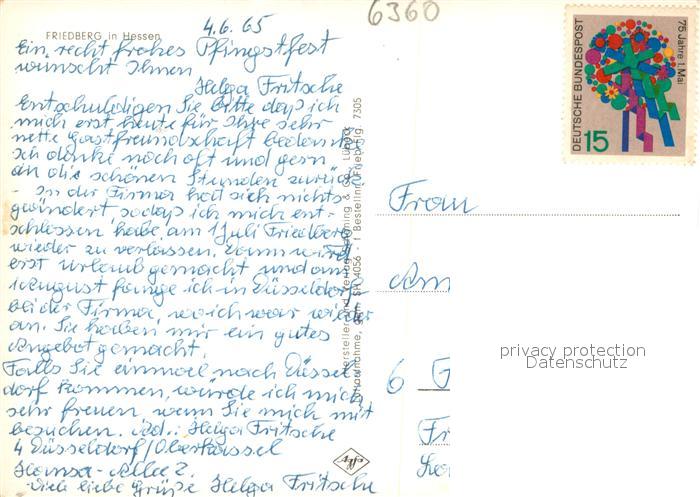 6360
4.6.65
FRIEDBERG in Hessen
Ein recht frohes Pfingstfest
wünscht Ihnen
Helga Fritsche
Entschuldigen Sie bitte daß ich
mich erst heute für Ihre sehr
nette Gastfreundschaft bedanke
Ich denke noch oft und gern
an die schönen Stunden zurück
- In der Firma hat sich nichts
geändert, sodaß ich mich ent-
schlossen habe am 1 Juli Friedberg
wieder zu verlassen. Dann wird
erst Urlaub gemacht und am
1 August fange ich in Düsseldorf
bei der Firma, wo ich war wieder
an. Sie haben mir ein gutes
Angebot gemacht.
Falls Sie einmal nach Düssel
dorf kommen, würde ich mich
sehr freuen, wenn Sie mich mit
besuchen. Ad.: Helga Fritsche
4 Düsseldorf/Oberkassel
Hansa-Allee 2
Viele liebe Grüße Helga Fritsche
Hersteller und Verlag Schöning & Co., Lübeck
4056 · f Bestellnr. Friedb. 7305
Agfa
DEUTSCHE BUNDESPOST
75 Jahre 1. Mai
15
Frau
Am
6 G
Fr
privacy protection
Datenschutz